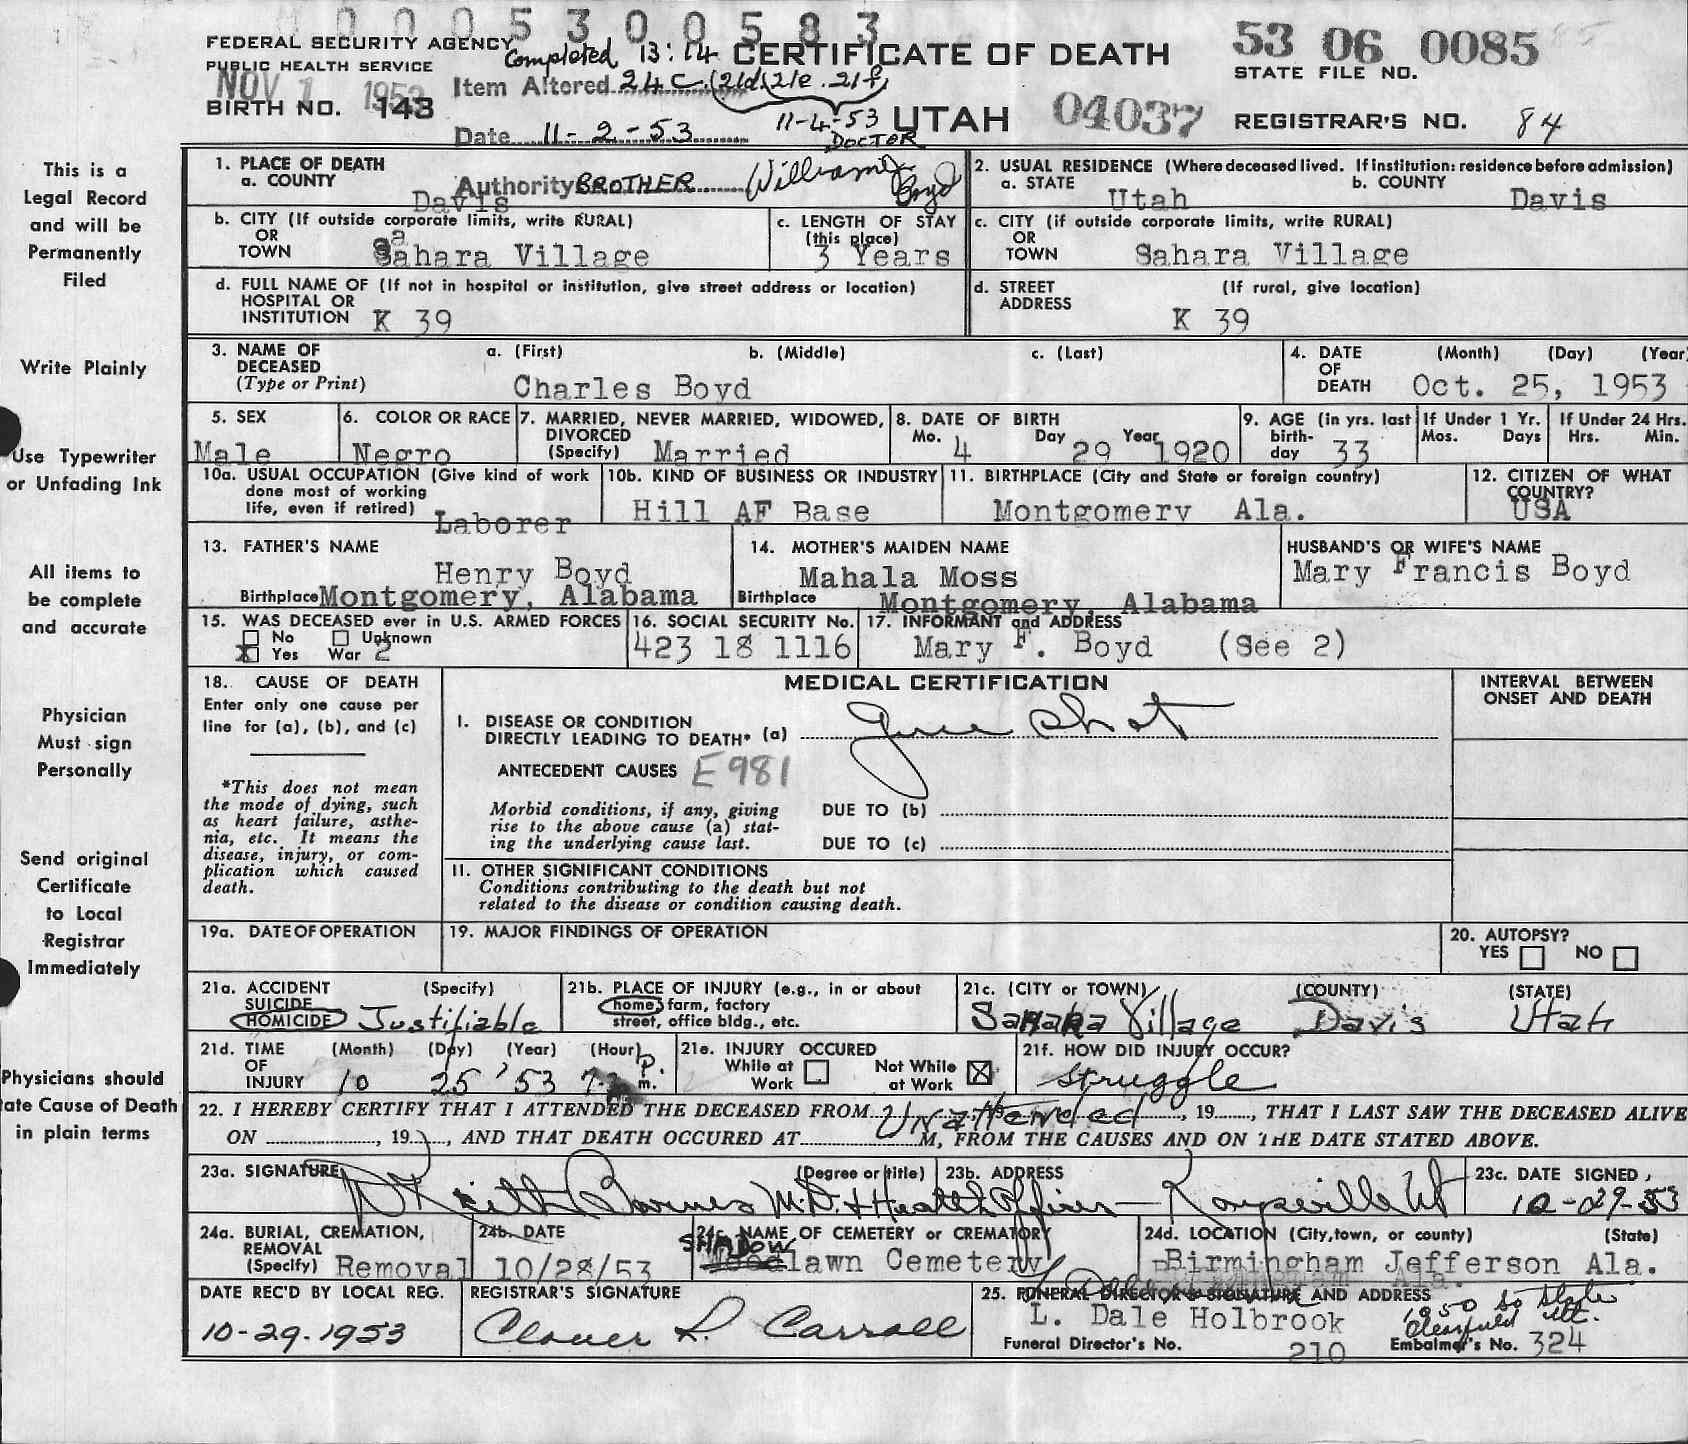 0005300583
FEDERAL SECURITY AGENCY
PUBLIC HEALTH SERVICE
NOV 1 1953
BIRTH NO. 143
Completed 13:14
CERTIFICATE OF DEATH
Item Altered 24 C. (21d) 21e. 21f,
Date 11-2-53
11-4-53
DOCTOR
UTAH
04037
53 06 0085
STATE FILE NO.
REGISTRAR'S NO. 84
This is a
Legal Record
and will be
Permanently
Filed
Write Plainly
Use Typewriter
or Unfading Ink
All items to
be complete
and accurate
Physician
Must sign
Personally
Send original
Certificate
to Local
Registrar
Immediately
Physicians should
ate Cause of Death
in plain terms
1. PLACE OF DEATH
a. COUNTY Davis
Authority BROTHER William Boyd
2. USUAL RESIDENCE (Where deceased lived. If institution: residence before admission)
a. STATE Utah
b. COUNTY Davis
b. CITY (If outside corporate limits, write RURAL)
OR
TOWN Sahara Village
c. LENGTH OF STAY
(this place)
3 Years
c. CITY (if outside corporate limits, write RURAL)
OR
TOWN Sahara Village
d. FULL NAME OF (If not in hospital or institution, give street address or location)
HOSPITAL OR
INSTITUTION K 39
d. STREET (If rural, give location)
ADDRESS
K 39
3. NAME OF DECEASED (Type or Print)
a. (First) b. (Middle) c. (Last)
Charles Boyd
4. DATE OF DEATH (Month) (Day) (Year)
Oct. 25, 1953
5. SEX
Male
6. COLOR OR RACE
Negro
7. MARRIED, NEVER MARRIED, WIDOWED,
DIVORCED
(Specify) Married
8. DATE OF BIRTH
Mo. 4 Day 29 Year 1920
9. AGE (in yrs. last
birth-
day 33
If Under 1 Yr.
Mos. Days
If Under 24 Hrs.
Hrs. Min.
10a. USUAL OCCUPATION (Give kind of work
done most of working
life, even if retired) Laborer
10b. KIND OF BUSINESS OR INDUSTRY
Hill AF Base
11. BIRTHPLACE (City and State or foreign country)
Montgomery Ala.
12. CITIZEN OF WHAT
COUNTRY?
USA
13. FATHER'S NAME
Henry Boyd
Birthplace Montgomery, Alabama
14. MOTHER'S MAIDEN NAME
Mahala Moss
Birthplace Montgomery, Alabama
HUSBAND'S OR WIFE'S NAME
Mary Francis Boyd
15. WAS DECEASED ever in U.S. ARMED FORCES
No Unknown
X Yes War 2
16. SOCIAL SECURITY No.
423 18 1116
17. INFORMANT and ADDRESS
Mary F. Boyd (See 2)
18. CAUSE OF DEATH
Enter only one cause per
line for (a), (b), and (c)
*This does not mean
the mode of dying, such
as heart failure, asthe-
nia, etc. It means the
disease, injury, or com-
plication which caused
death.
MEDICAL CERTIFICATION
I. DISEASE OR CONDITION
DIRECTLY LEADING TO DEATH* (a) Gun Shot
ANTECEDENT CAUSES E981
Morbid conditions, if any, giving
rise to the above cause (a) stat-
ing the underlying cause last.
DUE TO (b)
DUE TO (c)
II. OTHER SIGNIFICANT CONDITIONS
Conditions contributing to the death but not
related to the disease or condition causing death.
INTERVAL BETWEEN
ONSET AND DEATH
19a. DATE OF OPERATION
19. MAJOR FINDINGS OF OPERATION
20. AUTOPSY?
YES NO
21a. ACCIDENT (Specify)
SUICIDE
HOMICIDE Justifiable
21b. PLACE OF INJURY (e.g., in or about
home, farm, factory
street, office bldg., etc.
21c. (CITY or TOWN) (COUNTY) (STATE)
Sahara Village Davis Utah
21d. TIME OF INJURY (Month) (Day) (Year) (Hour)
10 25 '53 P. m.
21e. INJURY OCCURED
While at Work
Not While at Work X
21f. HOW DID INJURY OCCUR?
Struggle
22. I HEREBY CERTIFY THAT I ATTENDED THE DECEASED FROM Unattended, 19......, THAT I LAST SAW THE DECEASED ALIVE
ON .........., 19...., AND THAT DEATH OCCURED AT..........M, FROM THE CAUSES AND ON THE DATE STATED ABOVE.
23a. SIGNATURE (Degree or title)
D Keith Barnes M.D. & Health Officer
23b. ADDRESS
Kaysville Ut
23c. DATE SIGNED
10-29-53
24a. BURIAL, CREMATION,
REMOVAL
(Specify) Removal
24b. DATE
10/28/53
24c. NAME OF CEMETERY or CREMATORY
SHADOW lawn Cemetery
24d. LOCATION (City, town, or county) (State)
Birmingham Jefferson Ala.
DATE REC'D BY LOCAL REG.
10-29-1953
REGISTRAR'S SIGNATURE
Clover R. Carroll
25. FUNERAL DIRECTOR'S SIGNATURE AND ADDRESS
L. Dale Holbrook
1050 So State
Clearfield Ut.
Funeral Director's No. 210
Embalmer's No. 324